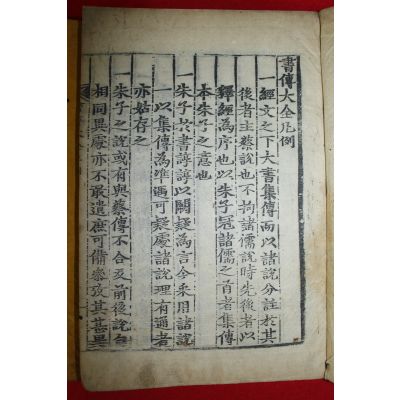 書傳大全凡例
一經文之下大書集傳而以諸說分註於其
後者主蔡說也不拘諸儒說時先後者以
釋經為序也以朱子冠諸儒之首者集傳
本朱子之意也
一朱子於書諄諄以闕疑為言今采用諸說
一以集傳為準遇可疑處諸說理有通者
亦姑存之
一朱子之說或有與蔡傳不合及前後說自
相同異處亦不敢遺庶可備參攷其甚異